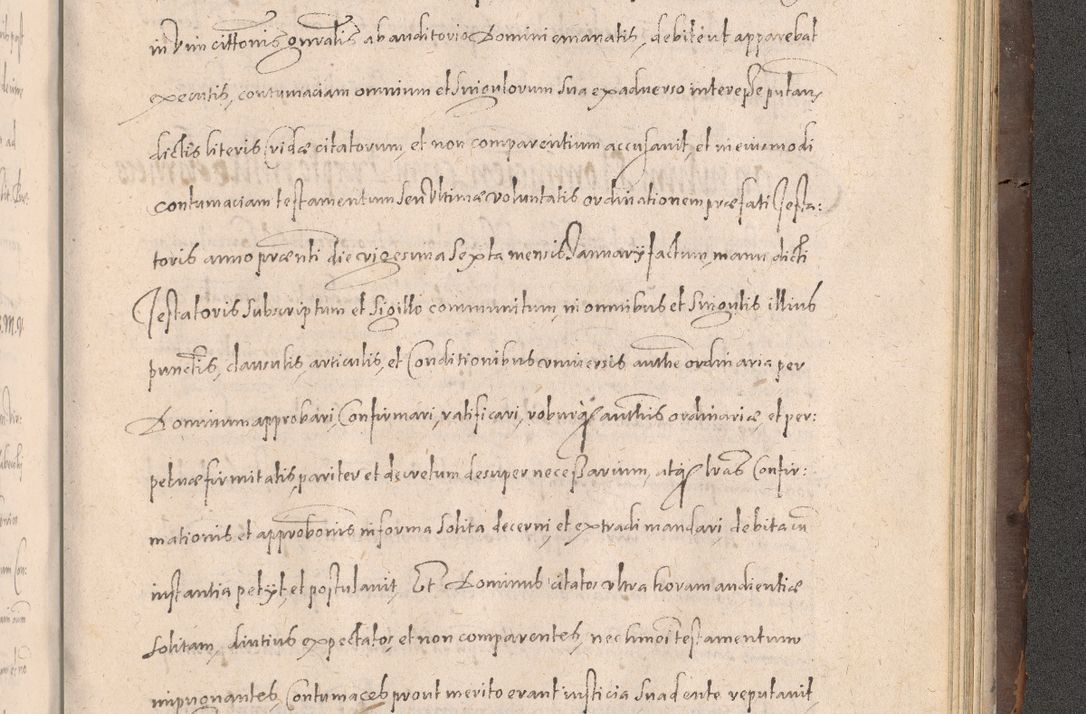 in vim cittonis gnralis ab auditorio Domini emanatis, debite ut apparebat
executis, contumaciam omnium et singulorum sua ex adverso interesse putan,
dictis literis pridæ citatorum, et non comparentium accusavit et in eiusmodi
contumaciam testamentum seu Ultimæ voluntatis ordinationem præfati Testa:
toris anno prænti die vigesima sexta mensis Januarÿ factum, manu dicti
Testatoris subscriptum et sigillo communitum, in omnibus et singulis illius
punctis, clausulis, articulis, et Conditionibus universis authe ordinaria per
Dominum approbari, Confirmari, ratificari, roburq authtis ordinariæ, et per:
petuæ firmitatis, pariter et decretum desuper necessarium, atq lras Confir:
mationis et approbonis in forma solita decerni, et extradi mandari, debita cu
instantia petÿt, et postulavit, Et Dominus citatos ultra horam audientiæ
solitam, diutius expectatos, et non comparentes, nec hmoi testamentum
impugnantes, Contumaces prout merito erant iusticia suadente reputavit